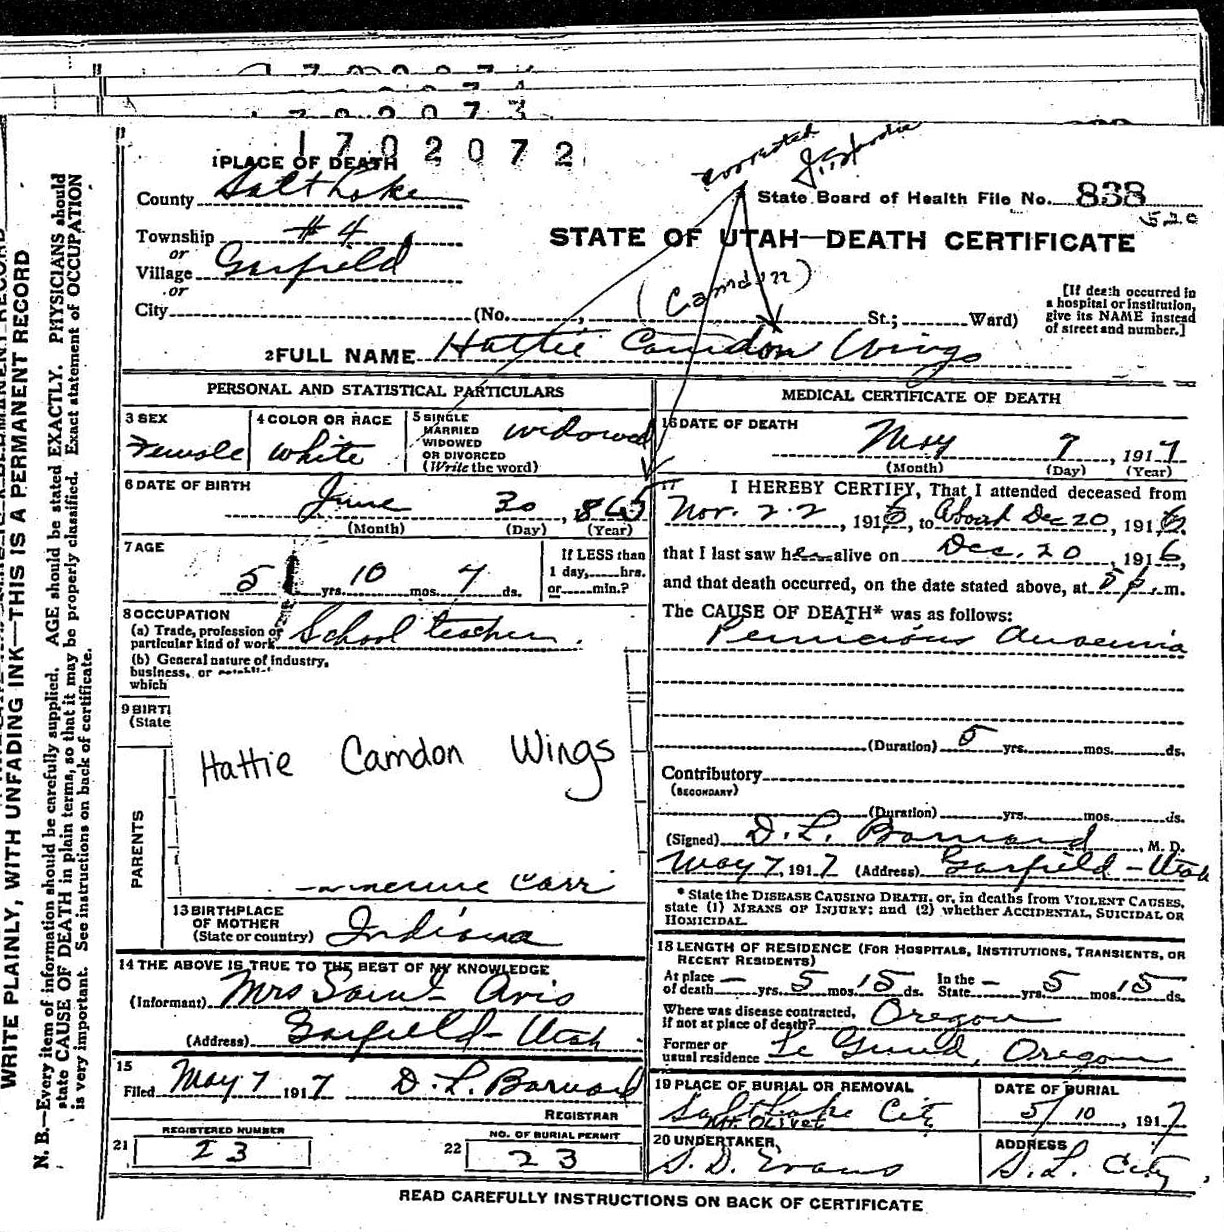 1702072
corrected
1 PLACE OF DEATH
County Salt Lake
State Board of Health File No. 838
520
Township #4
or
Village Garfield
or
City (No. , St.; Ward)
STATE OF UTAH—DEATH CERTIFICATE
(Camdon)
[If death occurred in
a hospital or institution,
give its NAME instead
of street and number.]
2 FULL NAME Hattie Camdon Wings
PERSONAL AND STATISTICAL PARTICULARS
3 SEX
Female
4 COLOR OR RACE
White
5 SINGLE
MARRIED
WIDOWED
OR DIVORCED
(Write the word)
widowed
6 DATE OF BIRTH
June 30, 865
(Month) (Day) (Year)
7 AGE
51 yrs. 10 mos. 7 ds.
If LESS than
1 day,......hrs.
or......min.?
8 OCCUPATION
(a) Trade, profession or
particular kind of work School teacher.
(b) General nature of industry,
business, or
which
9 BIRT
(State
Hattie Camdon Wings
PARENTS
Carr
13 BIRTHPLACE
OF MOTHER
(State or country) Indiana
14 THE ABOVE IS TRUE TO THE BEST OF MY KNOWLEDGE
(Informant) Mrs Saint Avis
(Address) Garfield - Utah
15
Filed May 7 1917 D. L. Barnard
REGISTRAR
21 REGISTERED NUMBER
23
22 NO. OF BURIAL PERMIT
23
MEDICAL CERTIFICATE OF DEATH
16 DATE OF DEATH
May 7, 1917
(Month) (Day) (Year)
17 I HEREBY CERTIFY, That I attended deceased from
Nov. 22, 1916, to About Dec 20, 1916,
that I last saw her alive on Dec. 20 1916,
and that death occurred, on the date stated above, at 5 p. m.
The CAUSE OF DEATH* was as follows:
Pernicious Anaemia
(Duration) 5 yrs. mos. ds.
Contributory
(SECONDARY)
(Duration) yrs. mos. ds.
(Signed) D. L. Barnard, M. D.
May 7, 1917 (Address) Garfield - Utah
* State the DISEASE CAUSING DEATH, or, in deaths from VIOLENT CAUSES,
state (1) MEANS OF INJURY; and (2) whether ACCIDENTAL, SUICIDAL OR
HOMICIDAL.
18 LENGTH OF RESIDENCE (FOR HOSPITALS, INSTITUTIONS, TRANSIENTS, OR
RECENT RESIDENTS)
At place
of death — yrs. 5 mos. 15 ds. In the
State — yrs. 5 mos. 15 ds.
Where was disease contracted,
if not at place of death? Oregon
Former or
usual residence Oregon
19 PLACE OF BURIAL OR REMOVAL
Salt Lake City
Mt. Olivet
DATE OF BURIAL
5/10, 1917
20 UNDERTAKER
S. D. Evans
ADDRESS
S. L. City
READ CAREFULLY INSTRUCTIONS ON BACK OF CERTIFICATE
WRITE PLAINLY, WITH UNFADING INK—THIS IS A PERMANENT RECORD
N. B.—Every item of information should be carefully supplied. AGE should be stated EXACTLY. PHYSICIANS should
state CAUSE OF DEATH in plain terms, so that it may be properly classified. Exact statement of OCCUPATION
is very important. See instructions on back of certificate.